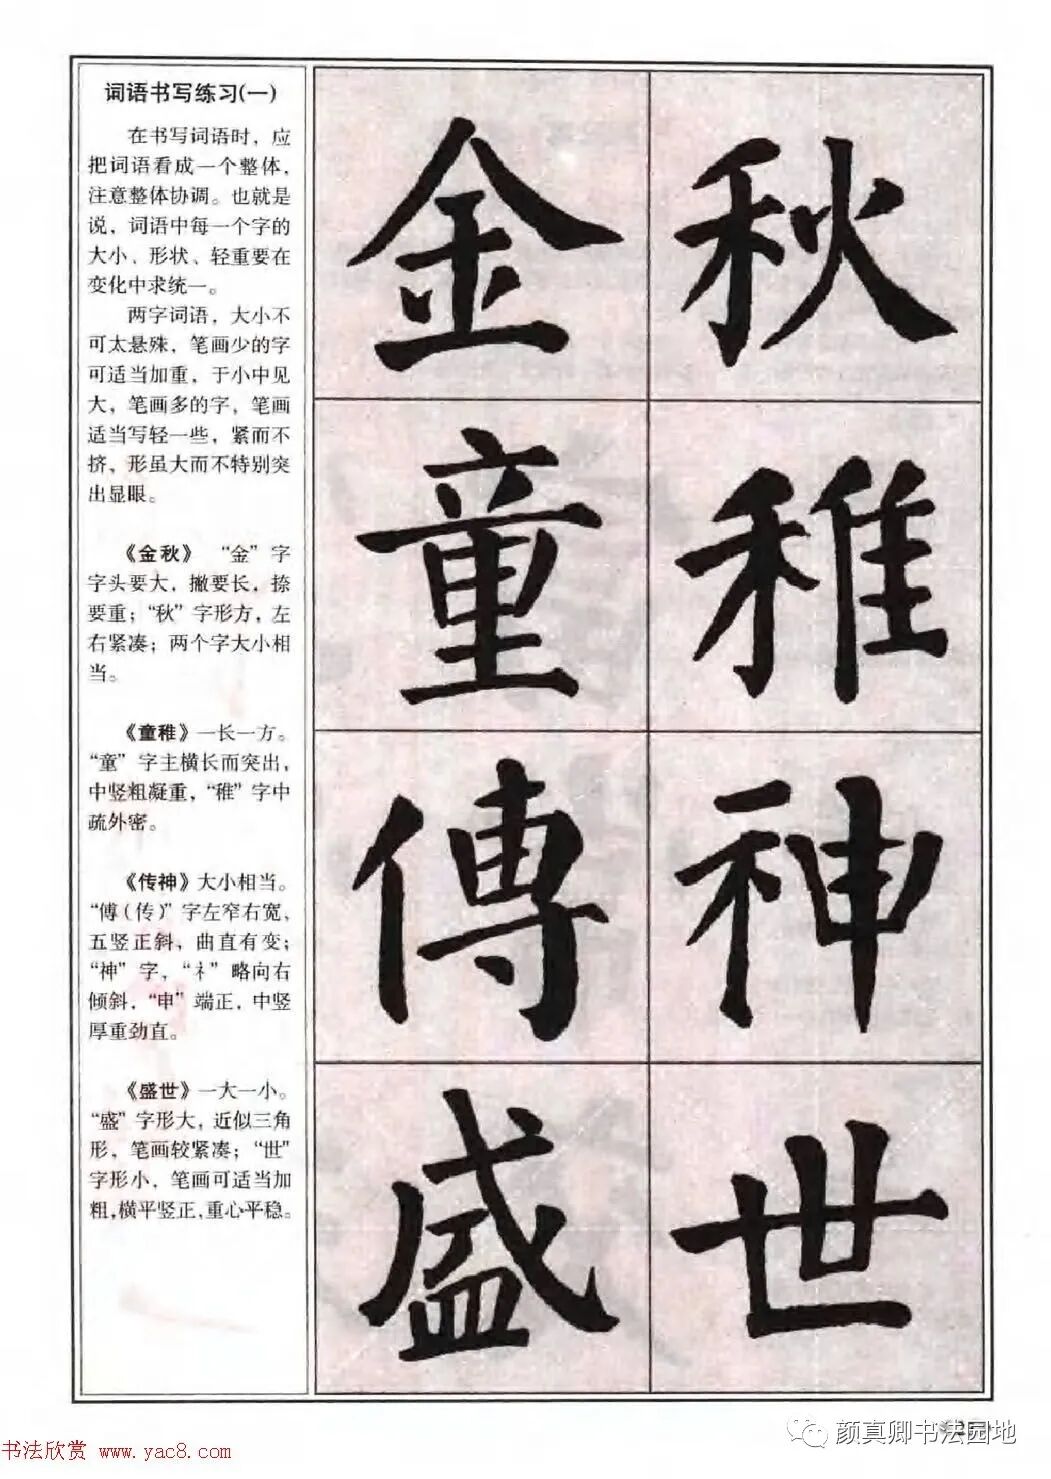 词语书写练习(一)
在书写词语时，应
把词语看成一个整体，
注意整体协调。也就是
说，词语中每一个字的
大小、形状、轻重要在
变化中求统一。
两字词语，大小不
可太悬殊，笔画少的字
可适当加重，于小中见
大，笔画多的字，笔画
适当写轻一些，紧而不
挤，形虽大而不特别突
出显眼。
《金秋》 “金”字
字头要大，撇要长，捺
要重；“秋”字形方，左
右紧凑；两个字大小相
当。
《童稚》一长一方。
“童”字主横长而突出，
中竖粗凝重，“稚”字中
疏外密。
《传神》大小相当。
“傳（传）”字左窄右宽，
五竖正斜，曲直有变；
“神”字，“礻”略向右
倾斜，“申”端正，中竖
厚重劲直。
《盛世》一大一小。
“盛”字形大，近似三角
形，笔画较紧凑；“世”
字形小，笔画可适当加
粗，横平竖正，重心平稳。
金秋
童稚
傳神
盛世
书法欣赏 www.yac8.com
颜真卿书法园地